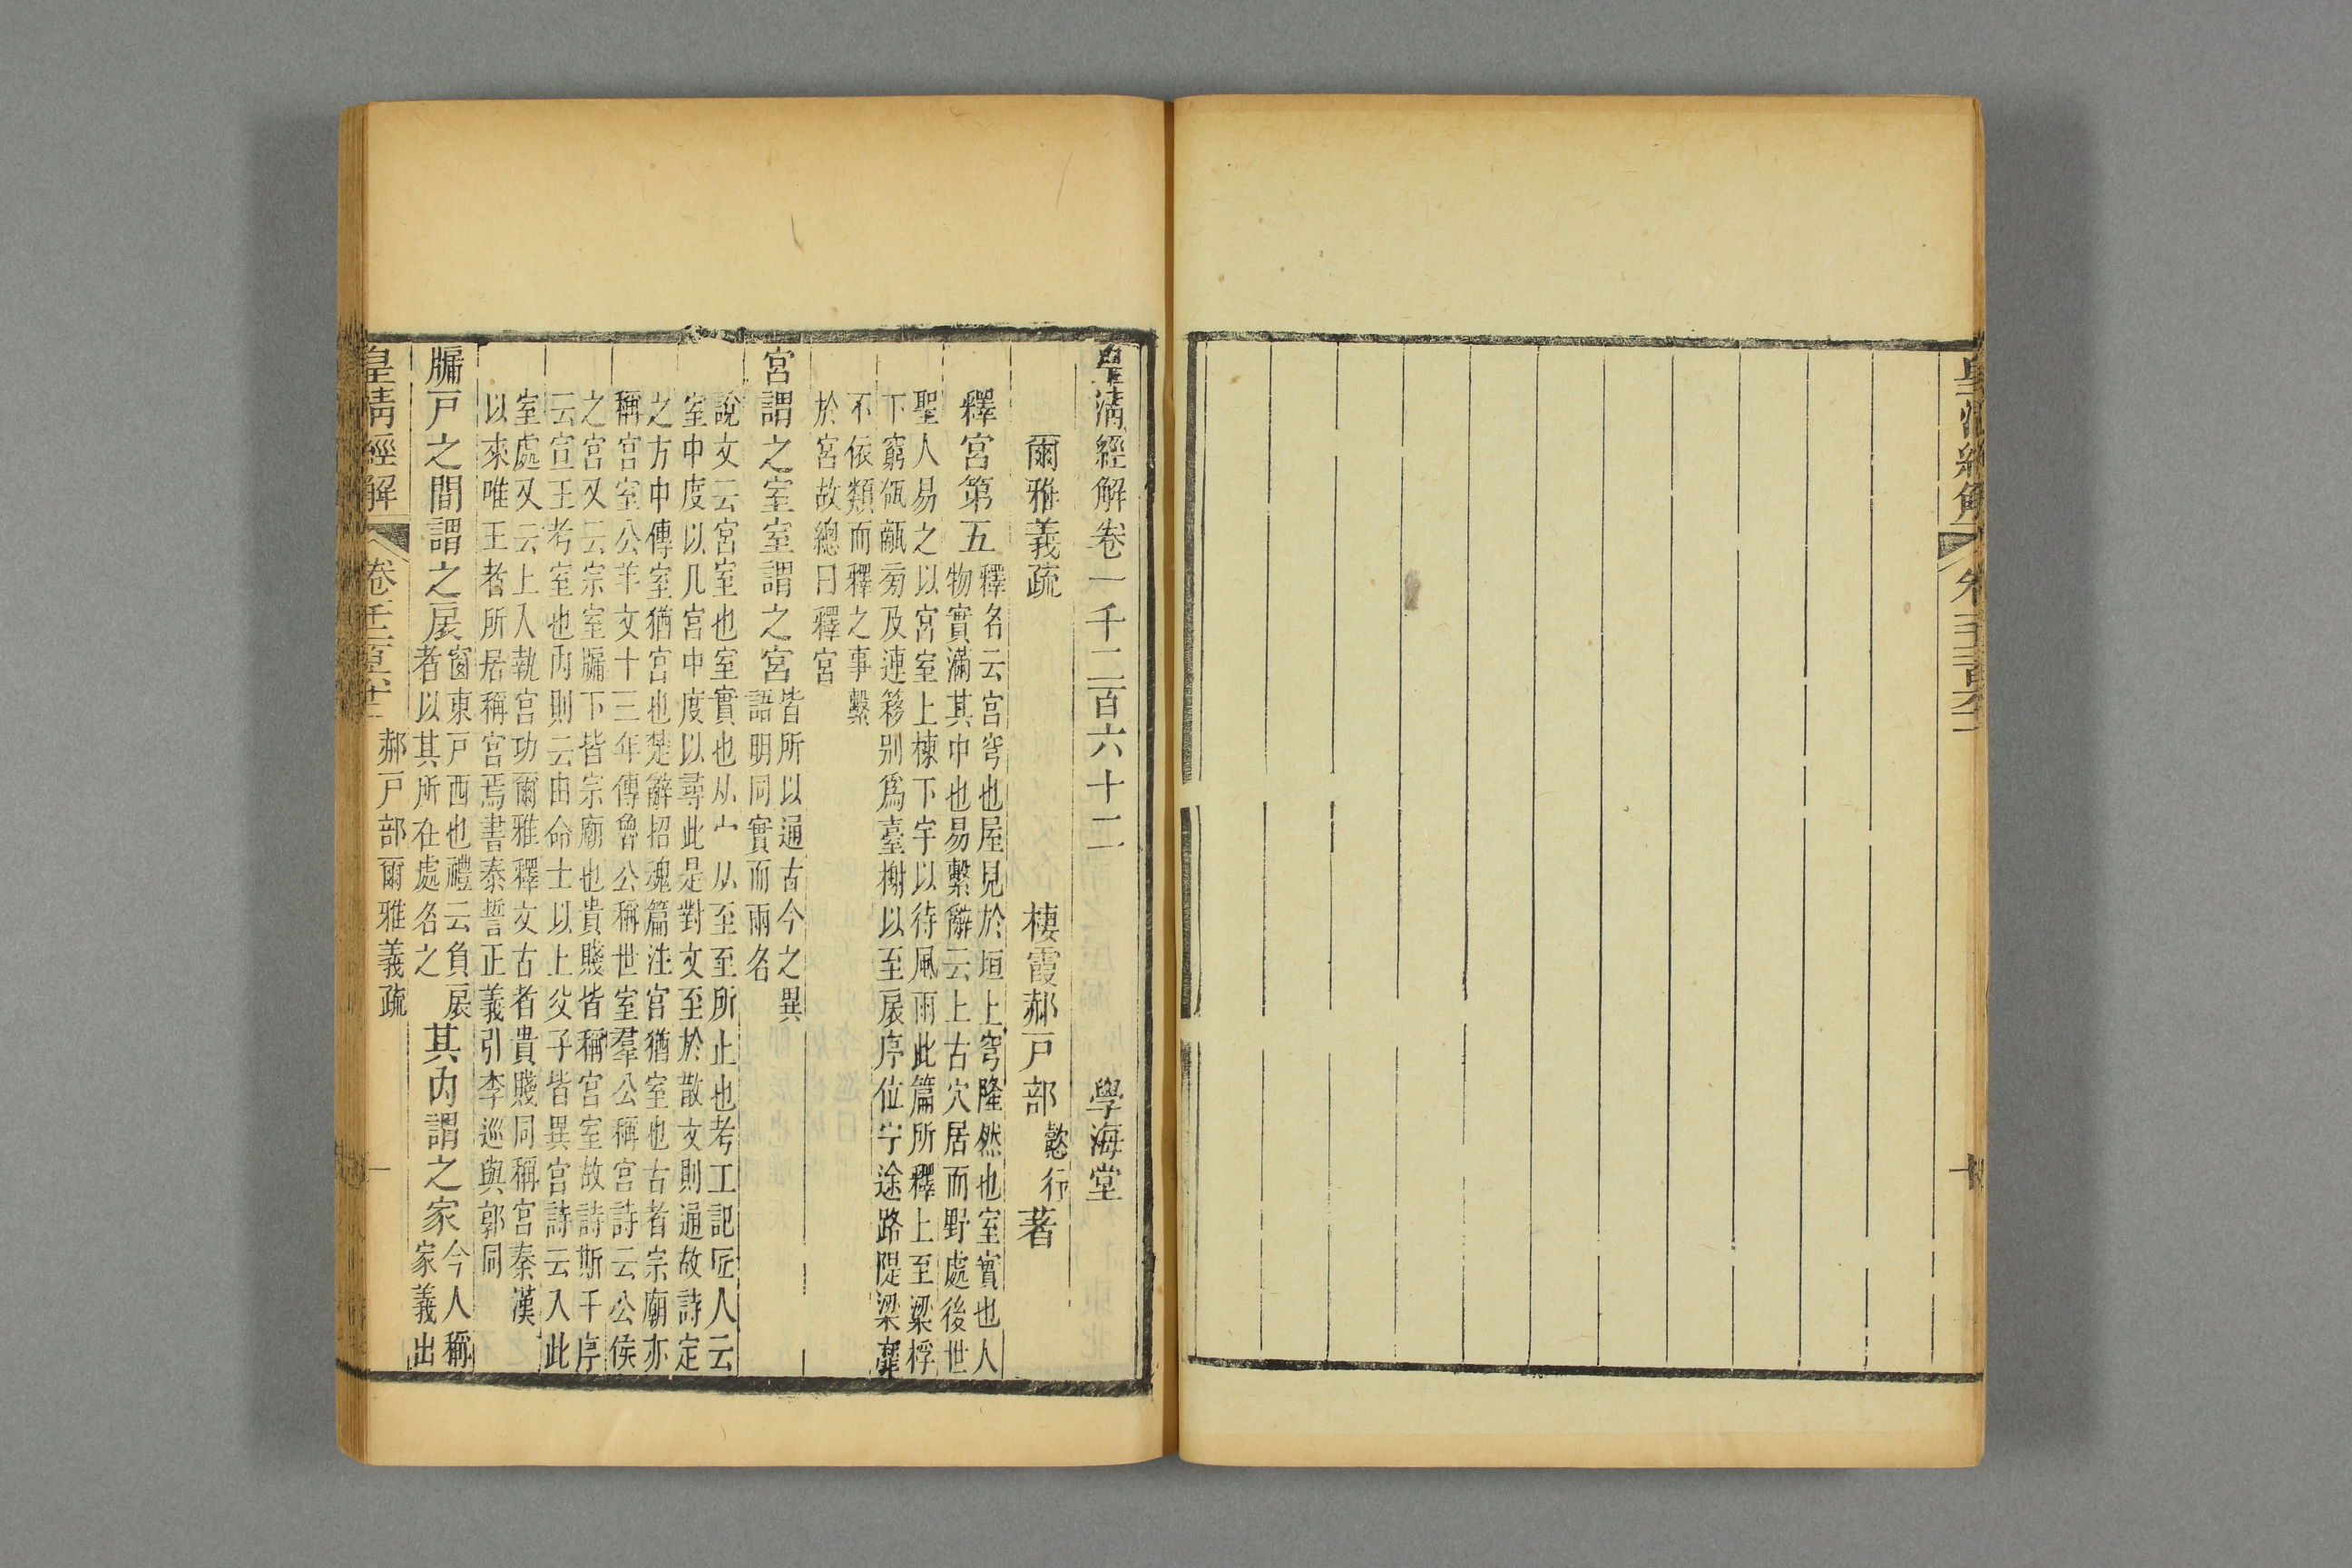 皇清經解卷一千二百六十二 學海堂
爾雅義疏 棲霞郝戸部懿行著
釋宮第五
釋名云宮穹也屋見於垣上穹隆然也室實也人
物實滿其中也易繫辭云上古穴居而野處後世
聖人易之以宮室上棟下宇以待風雨此篇所釋上至梁桴
下窮瓴甋㫄及連簃别爲臺榭以至扆序位宁途路隄梁靡
不依類而釋之事繫
於宮故總曰釋宮
宮謂之室室謂之宮
皆所以通古今之異
語明同實而兩名
說文云宮室也室實也从宀从至至所止也考工記匠人云
室中度以几宮中度以尋此是對文至於散文則通故詩定
之方中傳室猶宮也楚辭招魂篇注宮猶室也古者宗廟亦
稱宮室公羊文十三年傳魯公稱世室羣公稱宮詩云公侯
之宮又云宗室牖下皆宗廟也貴賤皆稱宮室故詩斯干序
云宣王考室也内則云由命士以上父子皆異宮詩云入此
室處又云上入執宮功爾雅釋文古者貴賤同稱宮秦漢
以來唯王者所居稱宮焉書泰誓正義引李巡與郭同
牖戸之間謂之扆
窗東戸西也禮云負扆
者以其所在處名之
其内謂之家
今人稱
家義出
皇清經解 郝戸部爾雅義疏 一